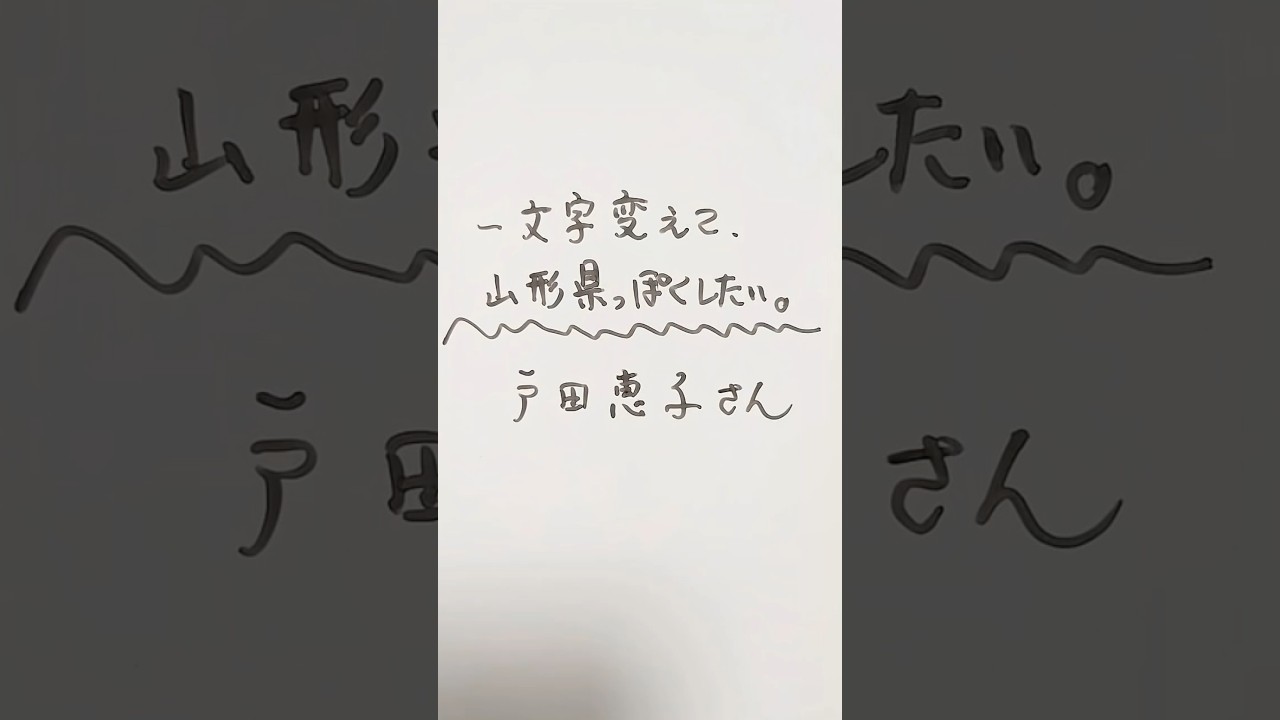 一文字変えて、
山形県っぽくしたい。
戸田恵子さん